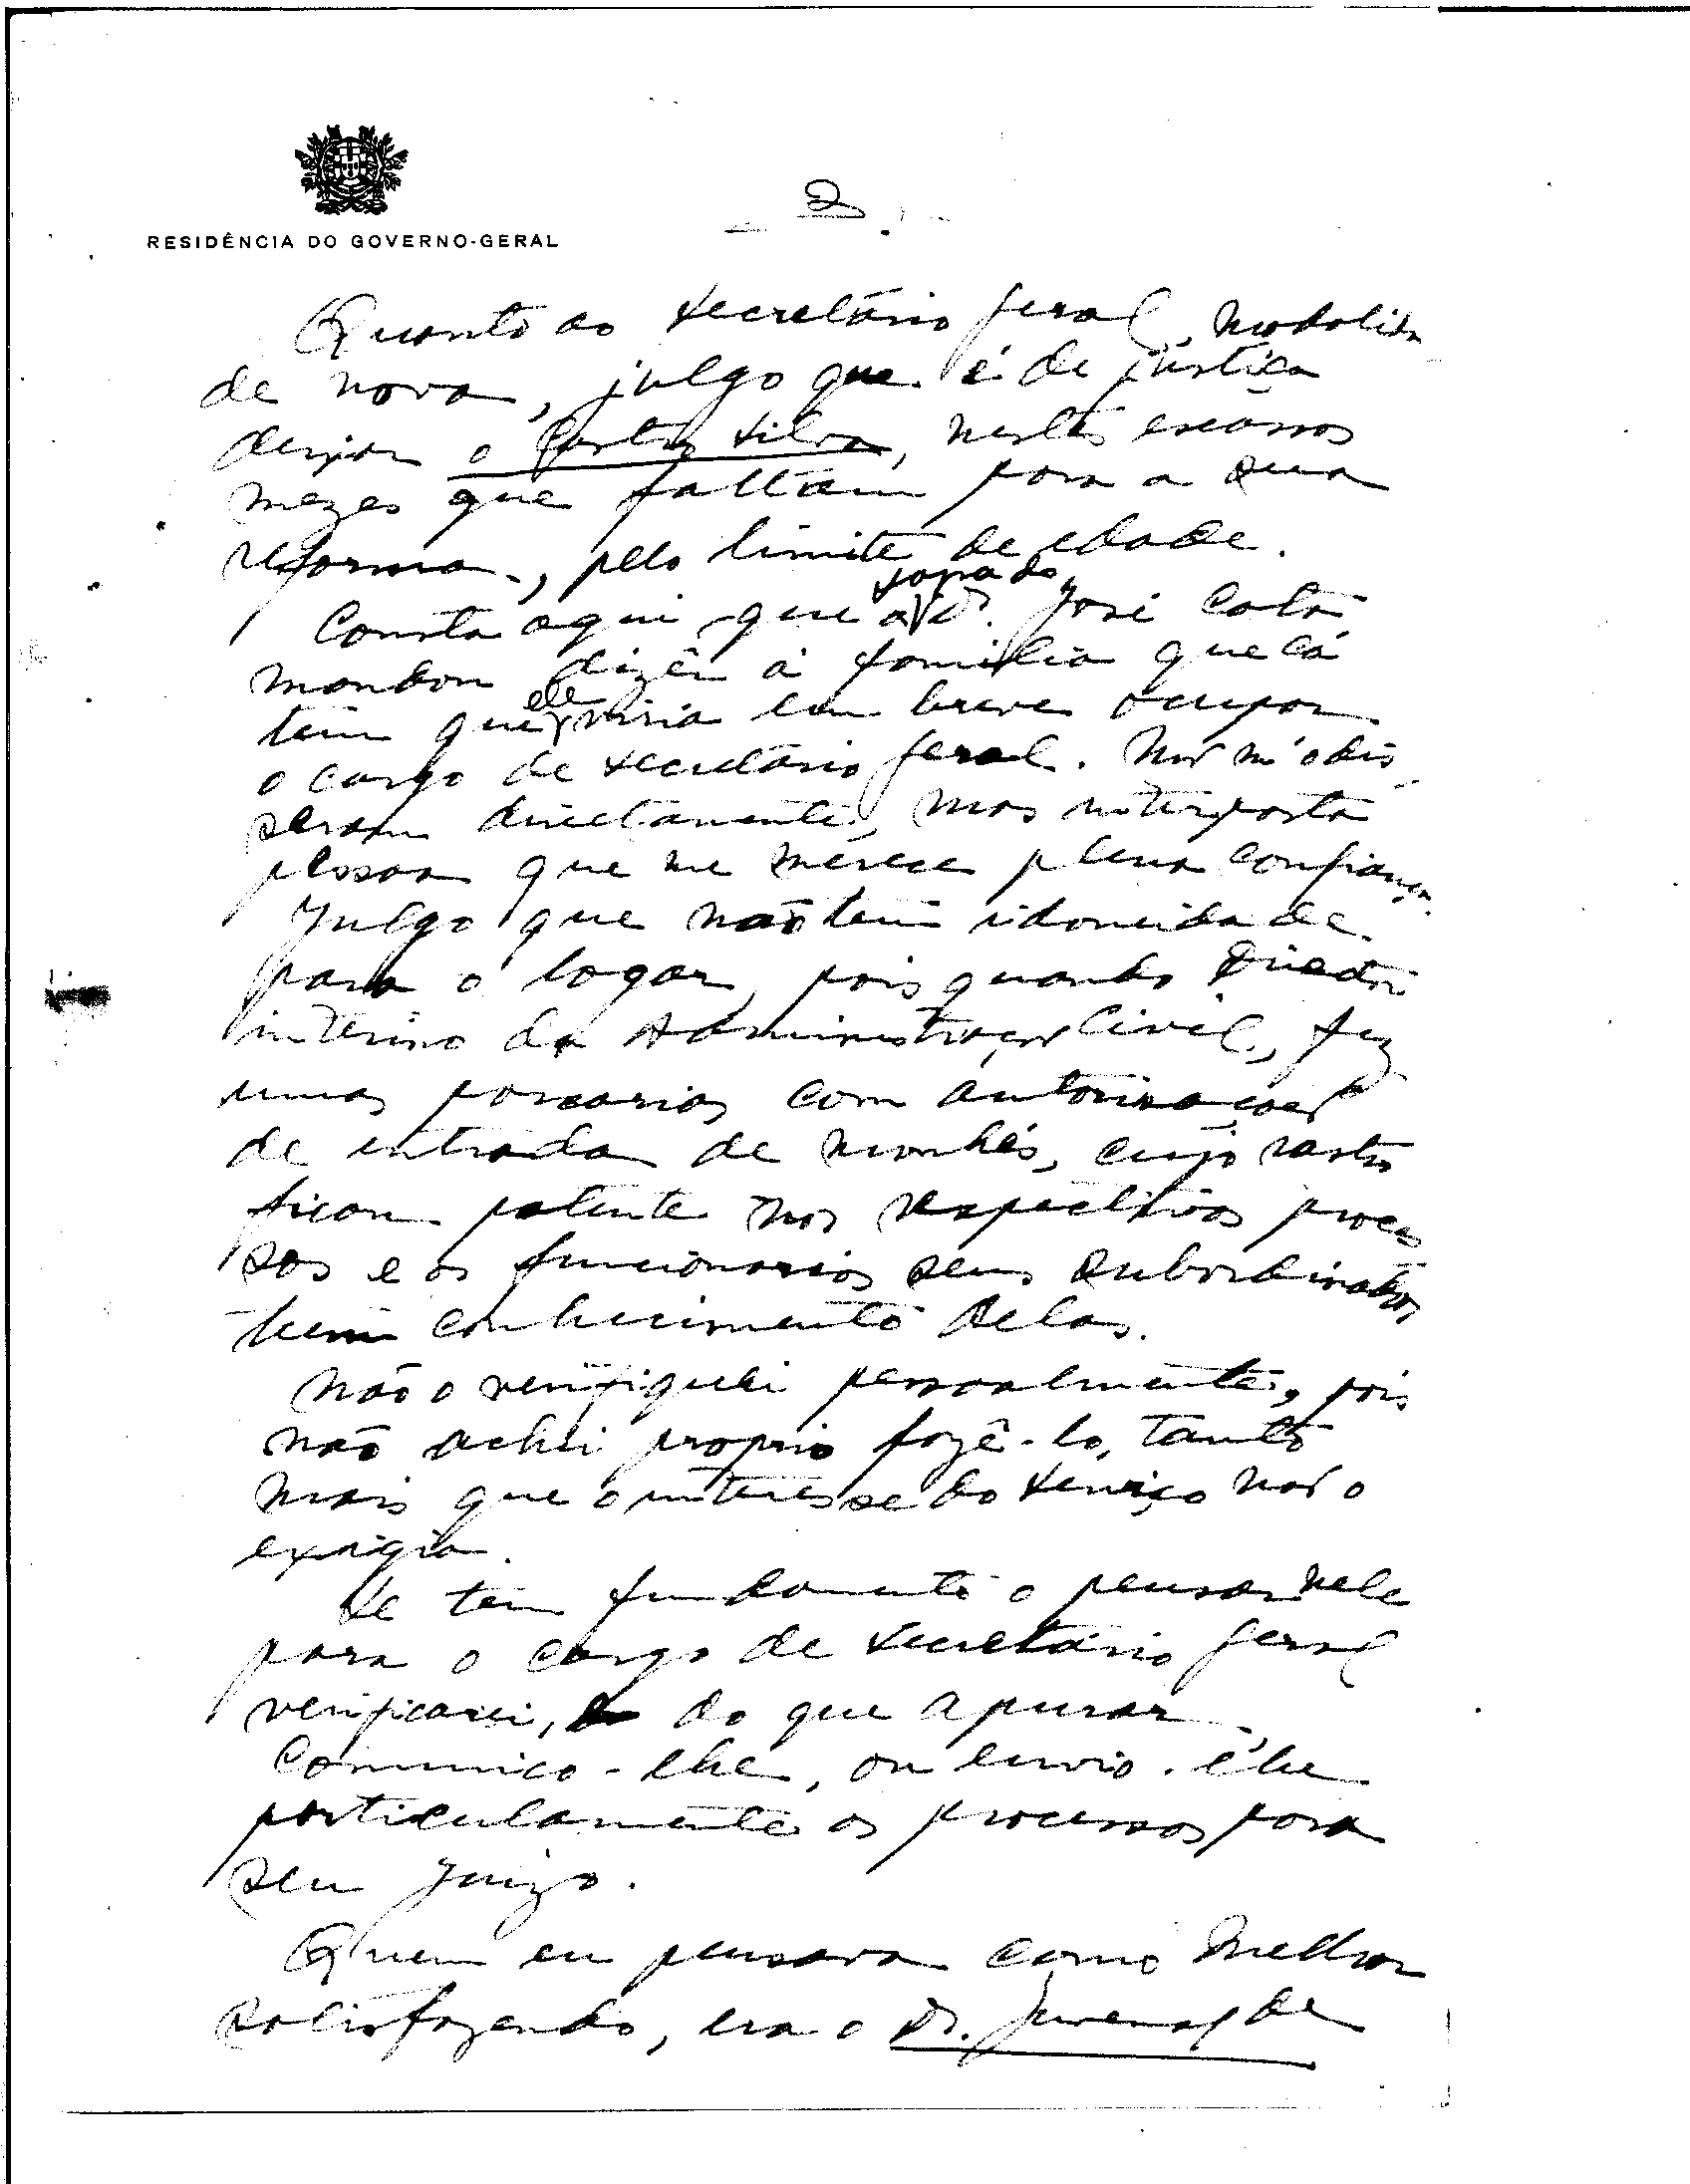 RESIDÊNCIA DO GOVERNO-GERAL
2
Quanto ao secretário geral, modalida
de nova, julgo que é de justiça
deixar o Silva, nestes escassos
mezes que faltam para a sua
reforma, pelo limite de edade.
Consta aqui que o Dr. José Cota
mandou dizer à familia que cá
tem que ele viria em breve ocupar
o cargo de secretário geral. Não m'o dis
seram directamente, mas interposta
pessoa que me merece plena confiança.
Julgo que não tem idoneidade
para o logar, pois quando Director
interino da Administração Civil, fez
umas porcarias com autorisações
de entrada de monhés, cujo rasto
ficou patente nos respectivos proces
sos e os funcionarios seus subordinados
teem conhecimento delas.
Não o verifiquei pessoalmente, pois
não achei proprio fazê-lo, tanto
mais que o interesse do serviço não o
exigia.
Se tem fundamento o pensar nele
para o cargo de secretário geral
verificarei, do que apurar,
comunico-lhe, ou envio-lhe
particularmente os processos para
seu juizo.
Quem eu pensava como melhor
satisfazendo, era o Dr. Juvenal de